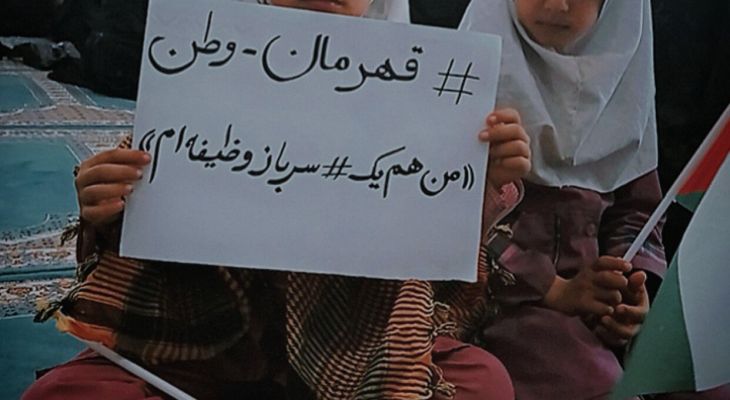 # قهرمان-وطن
«من هم یک # سرباز وظیفه ام»